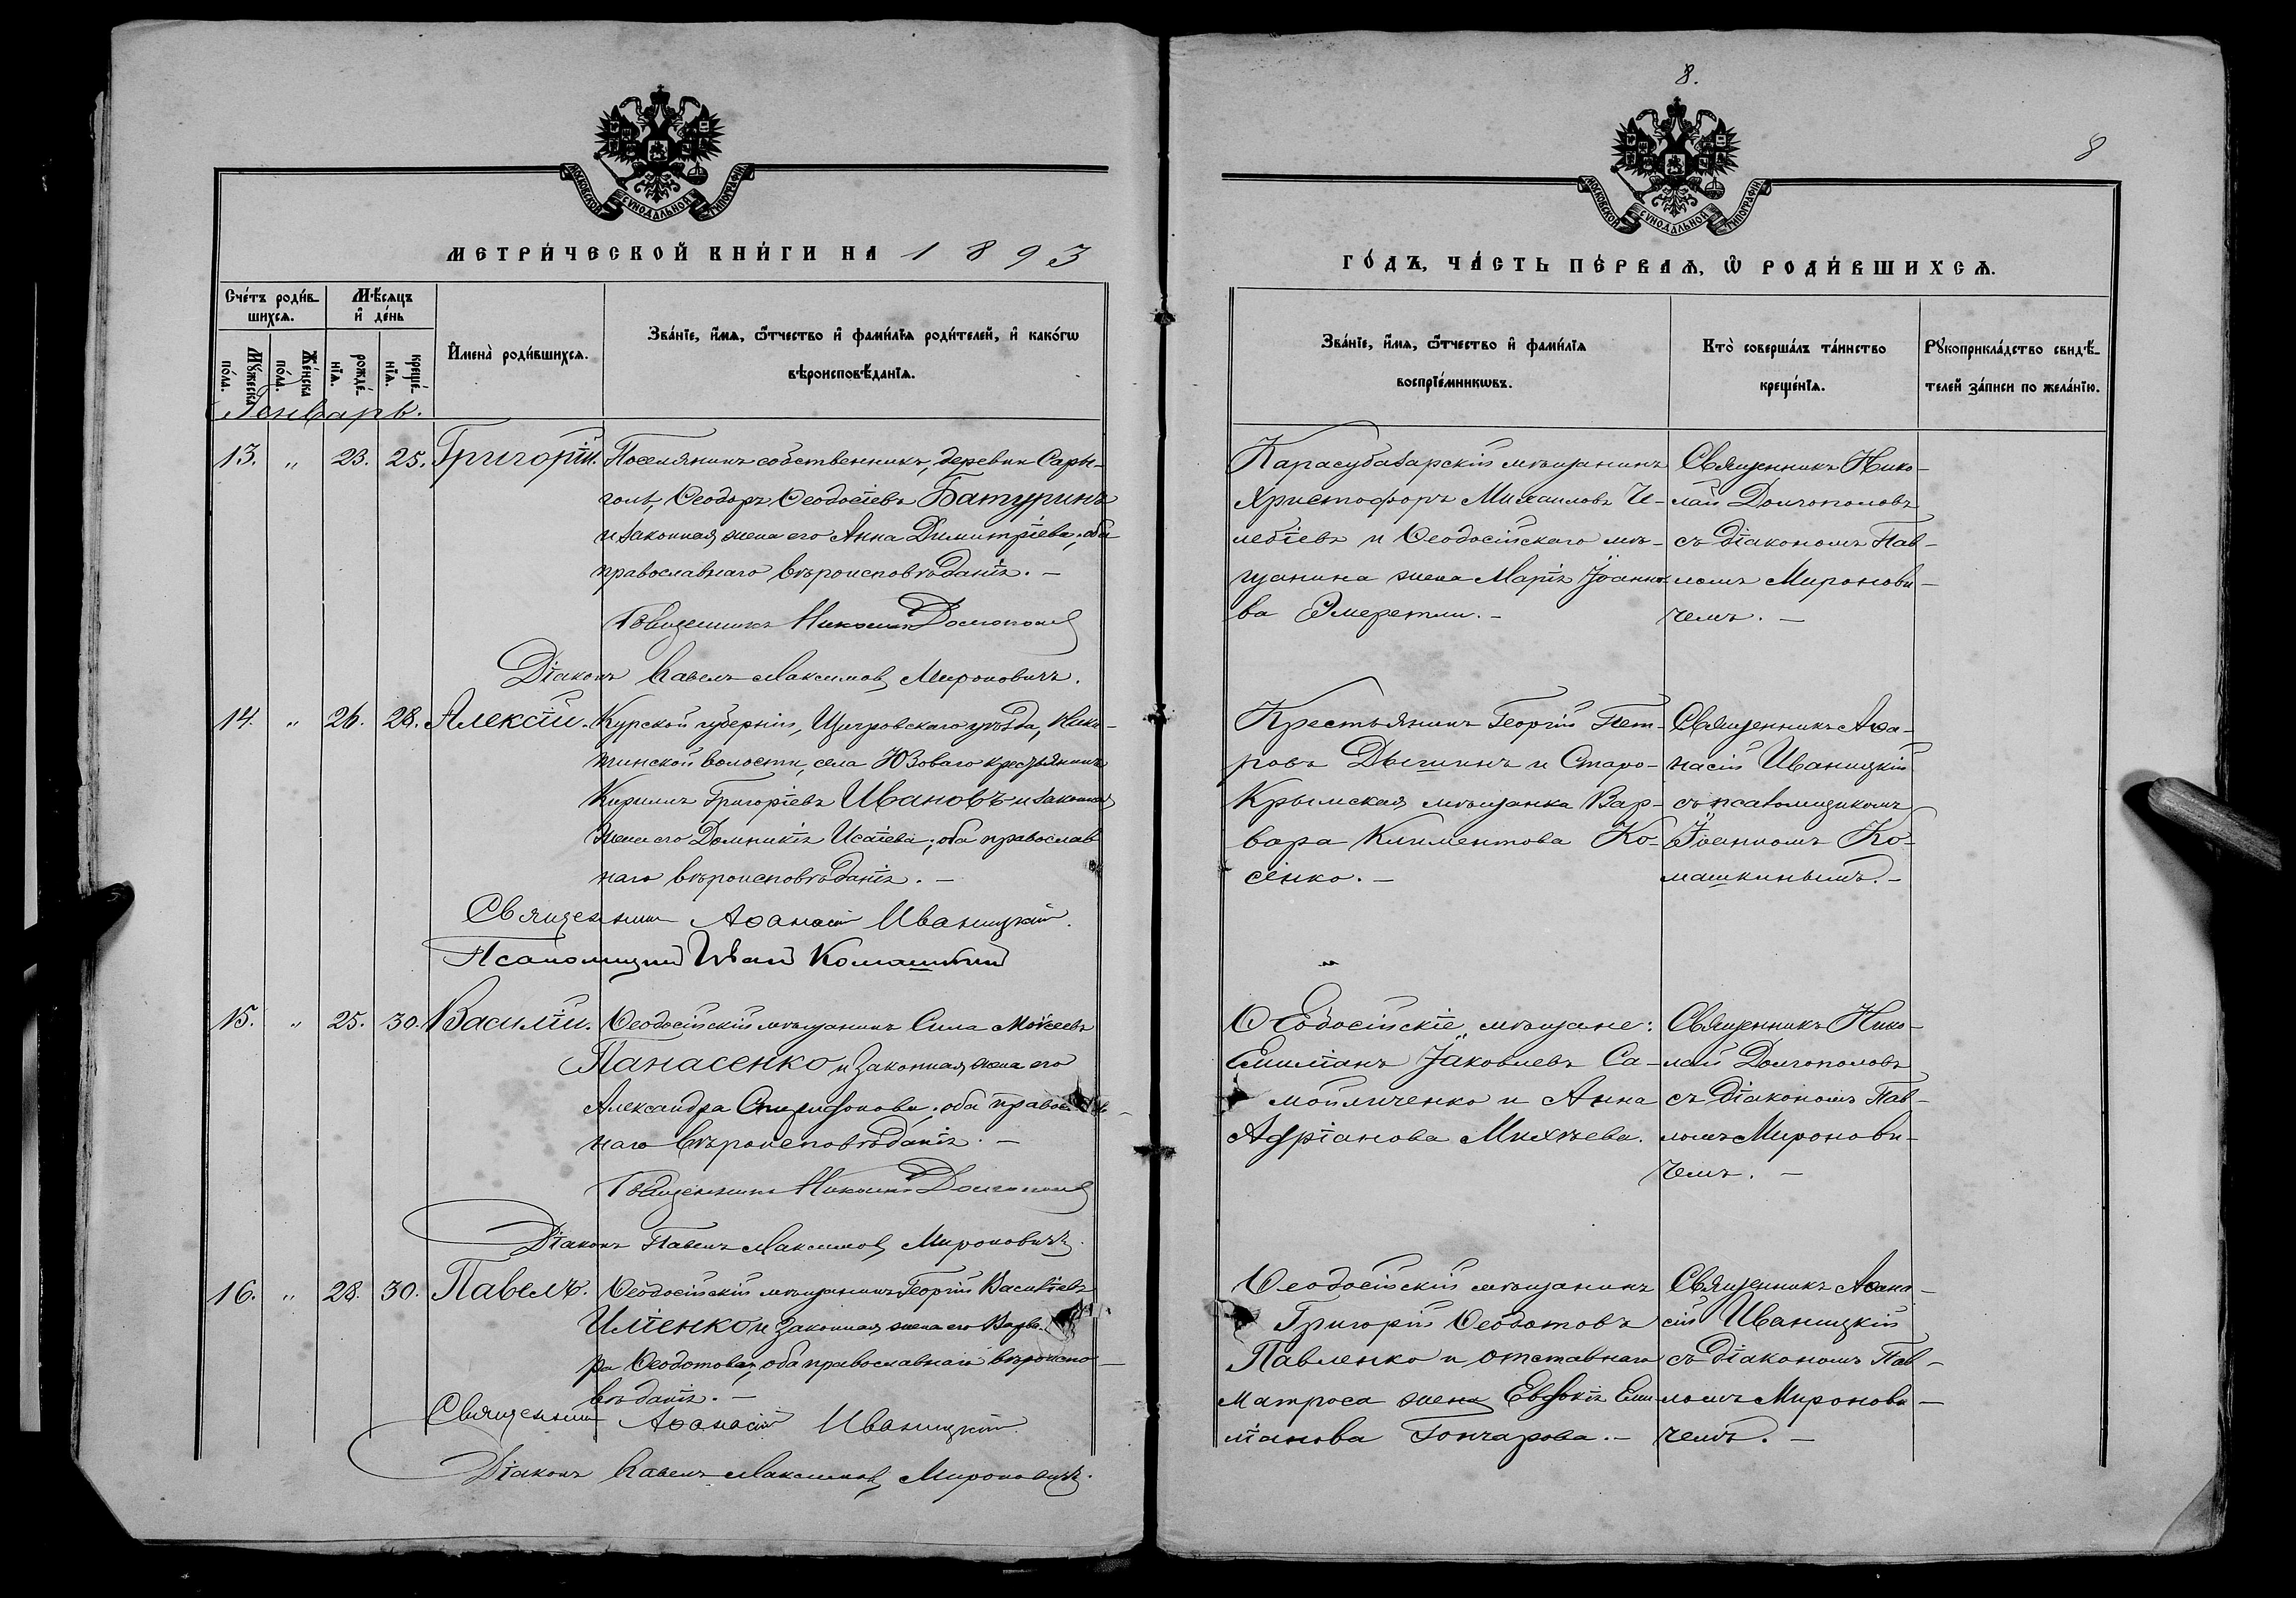 8.
8
МЕТРИ́ЧЕСКОЙ КНИ́ГИ НА 1893
ГО́ДЪ, ЧА́СТЬ ПЕ́РВАЯ, Ѡ РОДИ́ВШИХСЯ.
МОСКОВСКОЙ СѴНОДАЛЬНОЙ ТИПОГРАФІИ
МОСКОВСКОЙ СѴНОДАЛЬНОЙ ТИПОГРАФІИ
Сче́тъ роди́в-
шихся.
Мѣ́сяцъ
и҆ де́нь
Мꙋ́жеска по́ла.
Же́нска по́ла.
рожде́-
нїя.
креще́-
нїя.
И҆мена̀ роди́вшихся.
Зва́нїе, и҆́мя, ѻ҆́тчество и҆ фами́лїя роди́телей, и҆ како́гѡ
вѣроисповѣ́данїя.
Зва́нїе, и҆́мя, ѻ҆́тчество и҆ фами́лїя
воспрїе́мникѡвъ.
Кто̀ соверша́лъ та́инство
креще́нїя.
Рꙋкоприкла́дство свидѣ́-
телей за́писи по жела́нїю.
Генварь.
13. " 23. 25. Григорій. Поселянинъ собственникъ, деревни Сары-
голь, Ѳеодоръ Ѳеодосіевъ Батуринъ
и законная жена его Анна Димитріева, оба
православнаго вѣроисповѣданія. —
Священникъ Николай Долгополов
Діаконъ Павелъ Максимов Мироновичъ.
Карасубазарскій мѣщанинъ
Христофоръ Михаиловъ Че-
лебіевъ и Ѳеодосійскаго мѣ-
щанина жена Марія Іоанно-
ва Эмеретли. —
Священникъ Нико-
лай Долгополовъ
съ діакономъ Пав-
ломъ Миронови-
чемъ. —
14. " 26. 28. Алексій. Курской губерніи, Щигровскаго уѣзда, Ники-
тинской волости, села Юзоваго крестьянинъ
Кириллъ Григоріевъ Ивановъ и законная
жена его Домникія Исаіева; оба православ
наго вѣроисповѣданія. —
Священник Аѳанасій Иваницкій.
Псаломщик Иван Комашкин
Крестьянинъ Георгій Пет-
ровъ Дышинъ и Старо-
Крымская мѣщанка Вар-
вара Климентова Ко-
сенко. —
Священникъ Аѳа-
насій Иваницкій
съ псаломщикомъ
Іоанномъ Ко-
машкинымъ. —
15. " 25. 30. Василій. Ѳеодосійскій мѣщанинъ Сила Моѵсеевъ
Панасенко и законная жена его
Александра Спиридонова; оба правос
наго вѣроисповѣданія. —
Священникъ Николай Долгополов
Діаконъ Павелъ Максимов Мироновичъ.
Ѳеодосійскіе мѣщане:
Емиліанъ Іаковлевъ Са-
мойличенко и Анна
Адріанова Михѣева.
Священникъ Нико-
лай Долгополовъ
съ діакономъ Пав-
ломъ Миронови-
чемъ. —
16. " 28. 30. Павелъ. Ѳеодосійскій мѣщанинъ Георгій Василіевъ
Иліенко и законная жена его Варва
ра Ѳеодотова, оба православнаго вѣроиспо-
вѣданія. —
Священник Аѳанасій Иваницкій.
Діаконъ Павелъ Максимов Мироновичъ.
Ѳеодосійскій мѣщанинъ
Григорій Ѳеодотовъ
Павленко и отставнаго
матроса жена Евдокія Еми-
ліанова Гончарова. —
Священникъ Аѳана-
сій Иваницкій
съ діакономъ Пав-
ломъ Миронови-
чемъ. —